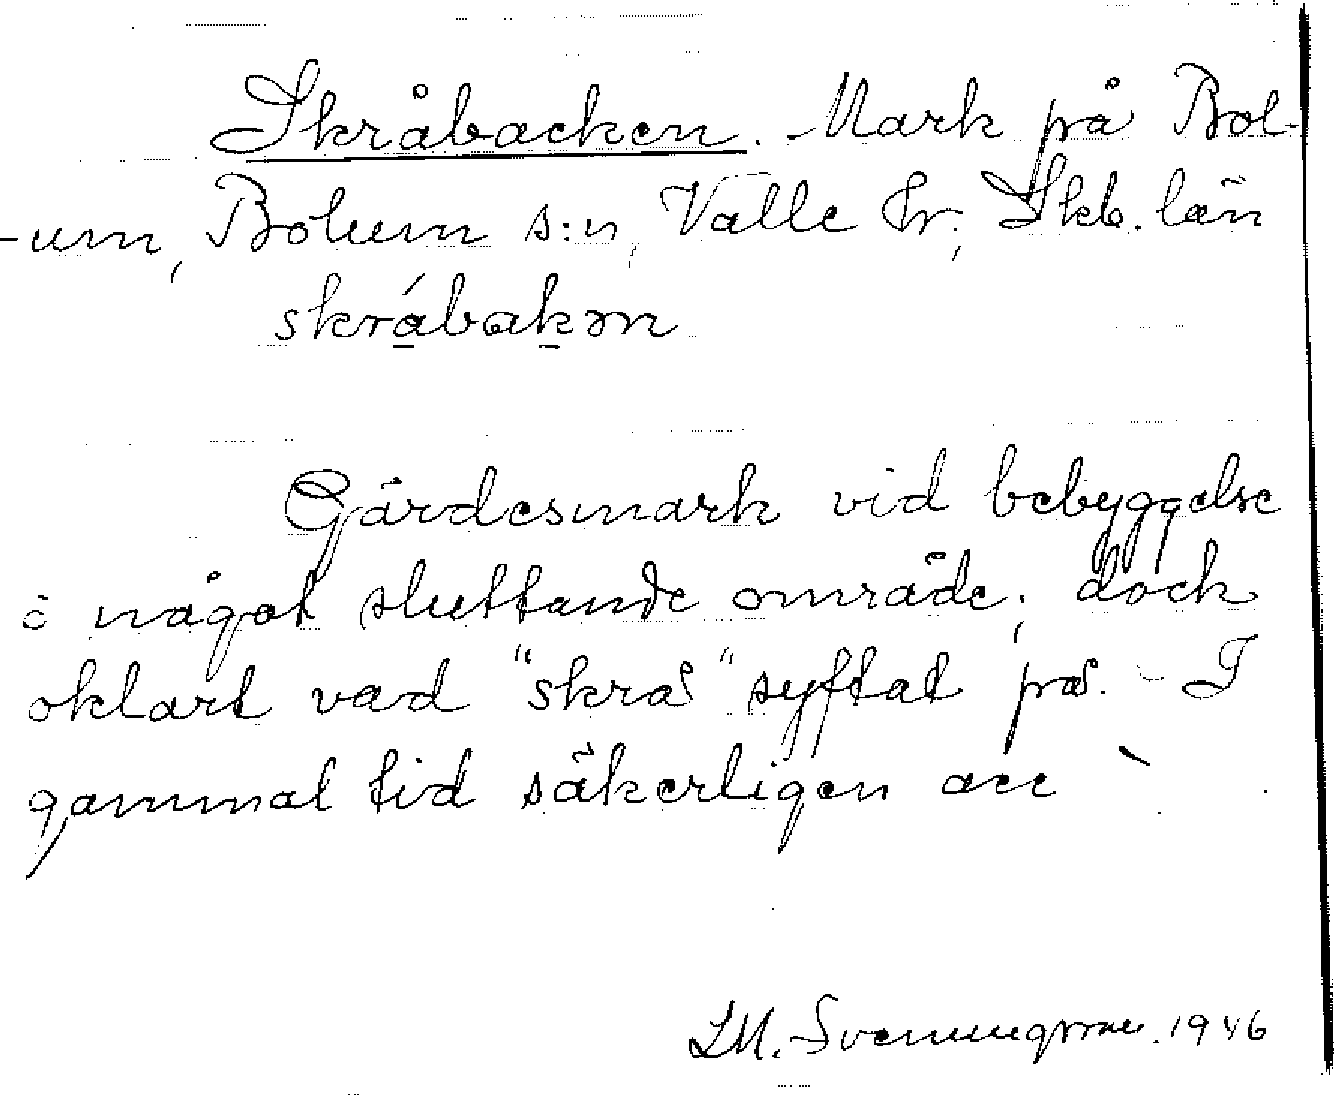 Skråbacken. Mark på Bol-
-um, Bolum s:n, Valle hr; Skb. län
skrábakən
Gärdesmark vid bebyggelse
i något sluttande område; doch
oklart vad "skrå" syftat på. - I
gammal tid säkerligen acc `
LM. Svenungsson. 1946